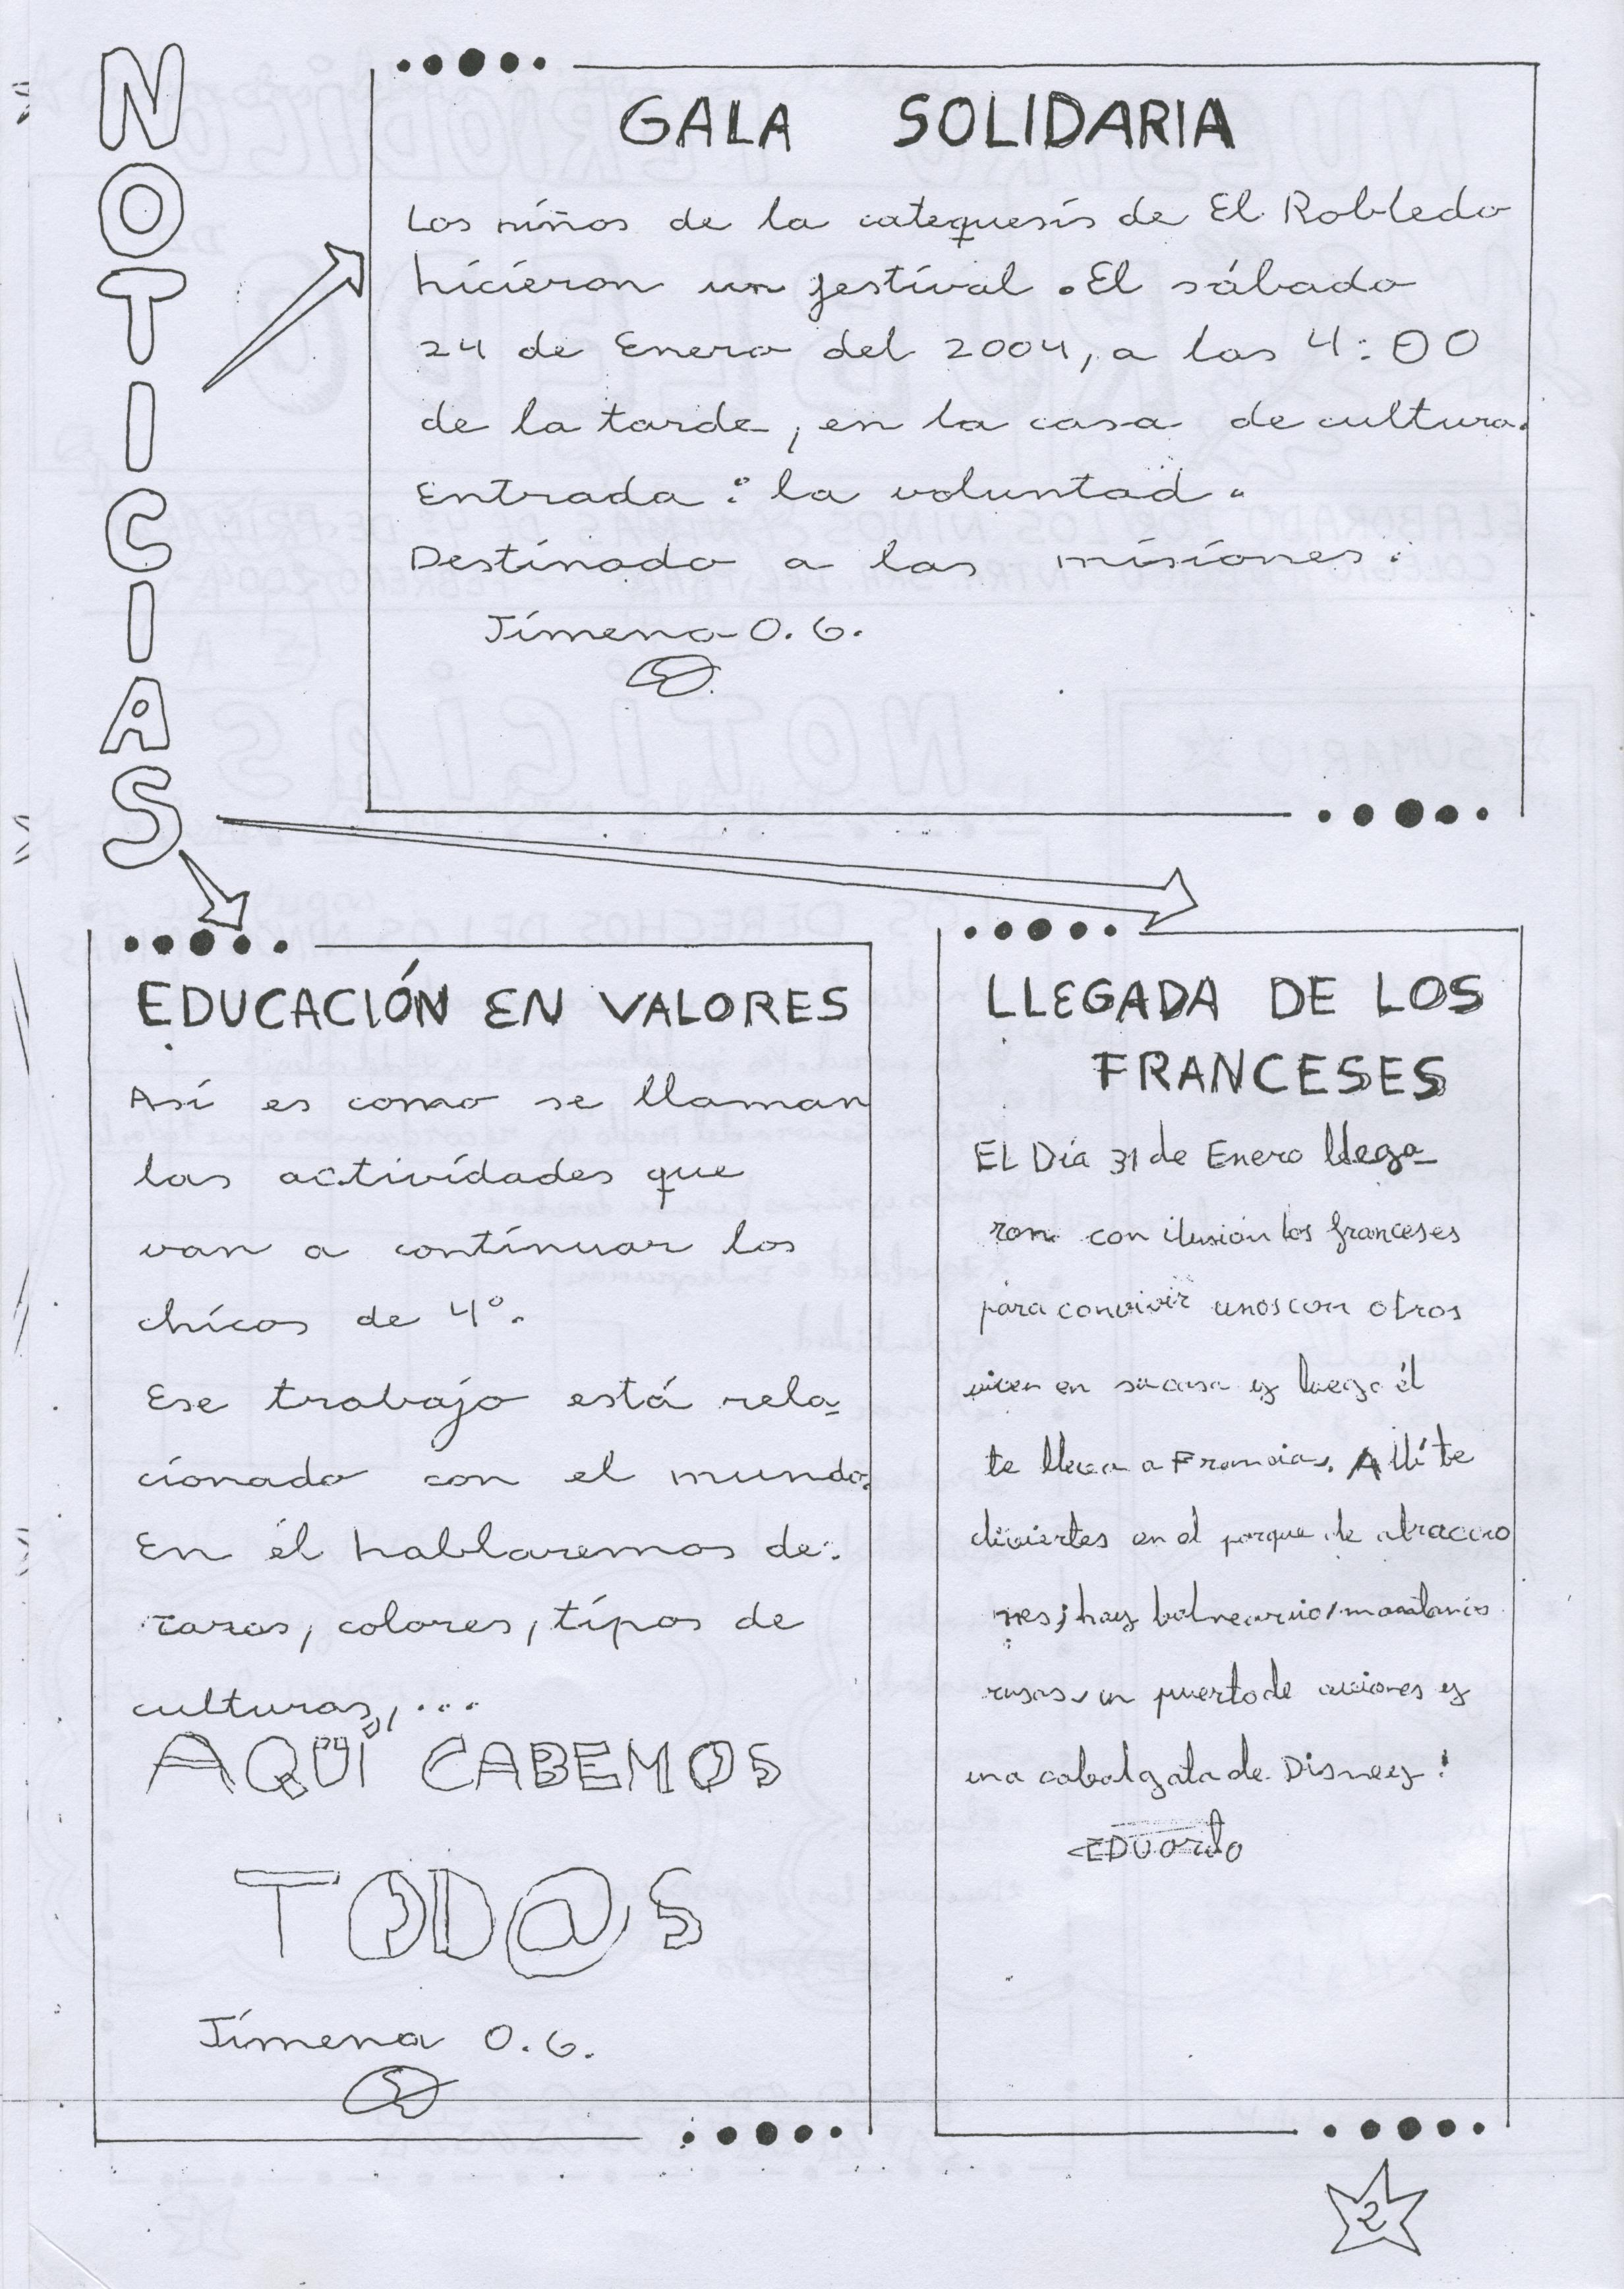 NOTICIAS
GALA SOLIDARIA
Los niños de la catequesis de El Robledo
hicieron un festival. El sábado
24 de Enero del 2004, a las 4:00
de la tarde, en la casa de cultura.
Entrada: la voluntad.
Destinado a las misiones.
Jimena O. G.
EDUCACIÓN EN VALORES
Así es como se llaman
las actividades que
van a continuar los
chicos de 4º.
Ese trabajo está rela-
cionado con el mundo.
En él hablaremos de:
razas, colores, tipos de
culturas,...
AQUÍ CABEMOS
TOD@S
Jimena O. G.
LLEGADA DE LOS
FRANCESES
EL Día 31 de Enero llega-
ron con ilusión los franceses
para convivir unos con otros
viven en su casa y luego él
te lleva a Francia. Allí te
diviertes en el parque de atraccio
nes; hay balneario, montañas
rusas, un puerto de aviones y
una cabalgata de Disney!
EDUardo
2